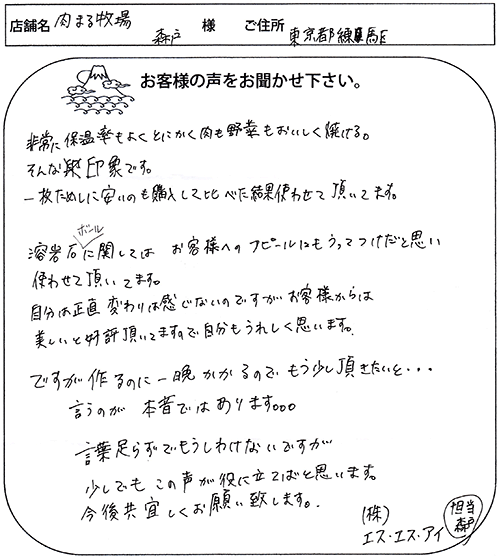 店舗名 肉まる牧場 森戸 様 ご住所 東京都練馬区
お客様の声をお聞かせ下さい。
非常に保温率もよくとにかく肉も野菜もおいしく焼ける。
そんな印象です。
一枚ためしに安いのも購入して比べた結果使わせて頂いてます。
ボール
溶岩石に関しては お客様へのアピールにもうってつけだと思い
使わせて頂いてます。
自分は正直変わりは感じないのですがお客様からは
美しいと好評頂いてますので自分もうれしく思います。
ですが作るのに一晩かかるのでもう少し頂きたいと・・・
言うのが 本音ではあります。。。
言葉足らずでもうしわけないですが
少しでもこの声が役に立てばと思います。
今後共宜しくお願い致します。
(株)
エス・エス・アイ
担当
森戸